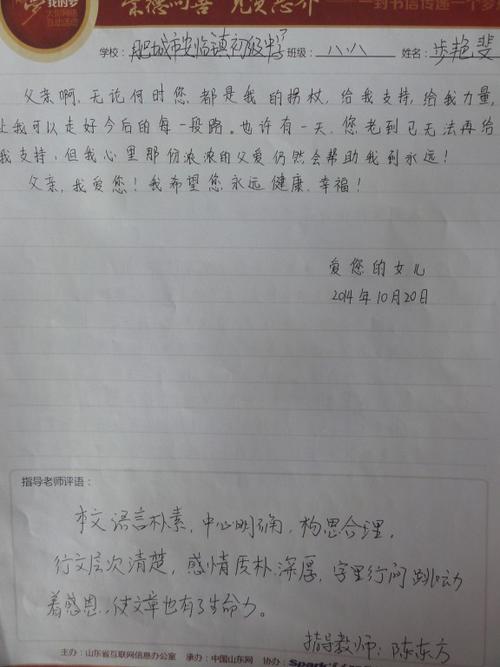 梦 我的梦
大型网络
互动活动
崇德向善 见贤思齐
一封书信传递一个梦
学校：肥城市安临镇初级中学 班级：八.八 姓名：步艳斐
父亲啊，无论何时您都是我的拐杖，给我支持，给我力量，
让我可以走好今后的每一段路。也许有一天，您老到已无法再给
我支持，但我心里那份浓浓的父爱仍然会帮助我到永远！
父亲，我爱您！我希望您永远健康、幸福！
爱您的女儿
2014年10月20日
指导老师评语：
本文语言朴素，中心明确，构思合理，
行文层次清楚，感情质朴、深厚，字里行间跳动
着感恩，使文章也有了生命力。
指导教师：陈东方
主办：山东省互联网信息办公室 承办：中国山东网 协办：Spark